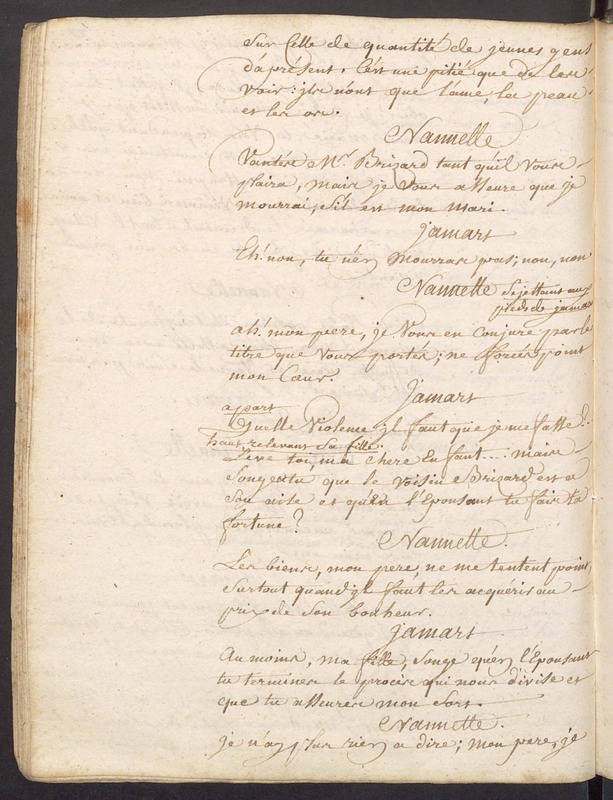 Sur Celle de quantité de jeunes gens
d'aprésent. C'est une pitié que de les
voir: jls n'ont que l'ame, la peau
et les os.
Nannette
Vantés Mr. Brizard tant qu'il Vous
plaira, mais je Vous assure que je
mourrai, s'il est mon mari.
jamart
Eh! non, tu n'en Mourras pas; non, non
Nannette Se jettant aux
pieds de jamart
ah! mon pere, je Vous en Conjure par le
titre que Vous portés; ne forcés point
mon Cœur.
jamart
apart
Quelle Violence jl faut que je me fasse!
haut relevant Sa fille.
Leve toi, ma chere Enfant... mais
Songes tu que le Voisin Brizard est a
Son aise et qu'en l'Epousant tu fais ta
fortune?
Nannette.
Les biens, mon pere, ne me tentent point,
Surtout quand jl faut les acquérir au
prix de Son bonheur.
jamart
Au moins, ma fille, Songe qu'en l'Epousant
tu termines le procès qui nous divise et
que tu assures mon Sort.
Nannette.
je n'ay plus rien a dire; mon pere, je